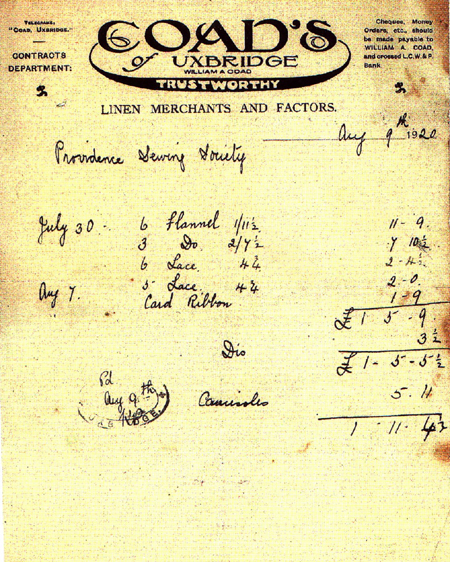 TELEGRAMS:
"COAD, UXBRIDGE."
CONTRACTS
DEPARTMENT:
COAD'S
of UXBRIDGE
WILLIAM A COAD
TRUSTWORTHY
Cheques, Money
Orders, etc., should
be made payable to
WILLIAM A. COAD,
and crossed L.C.W.& P.
Bank.
LINEN MERCHANTS AND FACTORS.
Aug 9th 1920
Providence Sewing Society
July 30 - 6 Flannel 1/11½ 11 - 9
3 Do 2/7½ 7 10½
6 Lace 4¾ 2 - 4½
Aug 7. 5 Lace 4¾ 2 - 0
Card Ribbon 1 - 9
£ 1 - 5 - 9
Dis 3½
£ 1 - 5 - 5½
Pd
Aug 9th
Camisoles 5. 11
1 - 11 - 4½